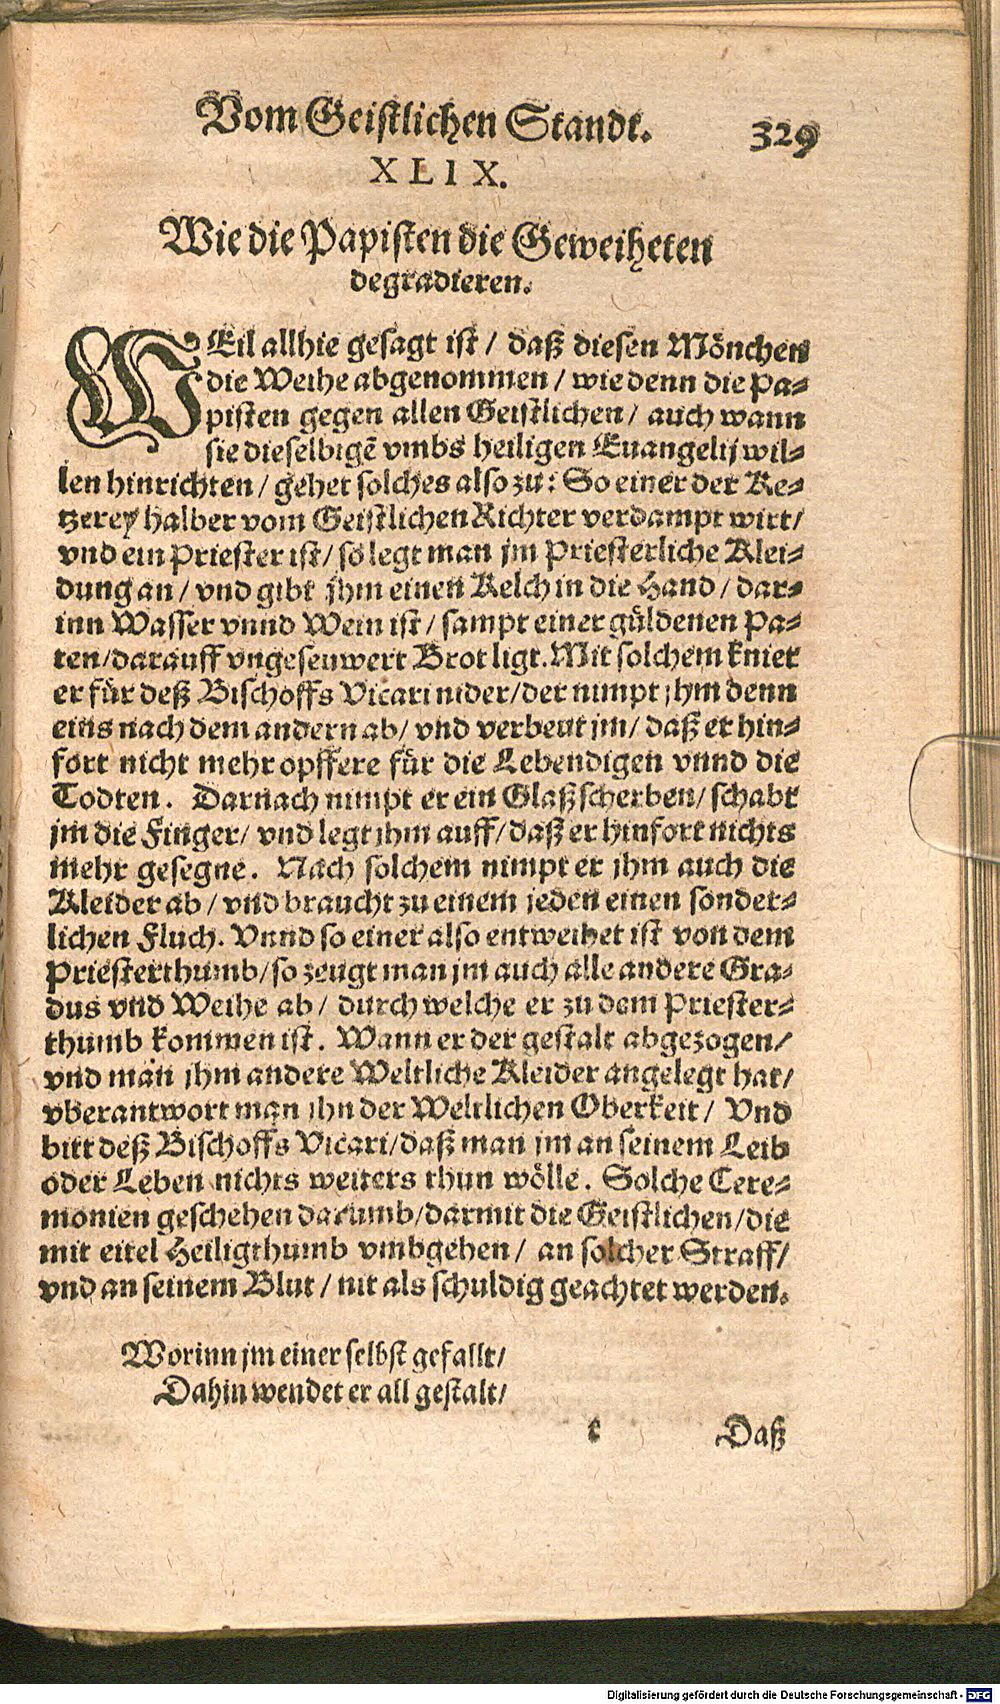 Vom Geistlichen Standt. 329
XLIX.
Wie die Papisten die Geweiheten
degradieren.
WEil allhie gesagt ist / daß diesen Mönchen
die Weihe abgenommen / wie denn die Pa-
pisten gegen allen Geistlichen / auch wann
sie dieselbigē vmbs heiligen Euangelij wil-
len hinrichten / gehet solches also zu: So einer der Ke-
tzerey halber vom Geistlichen Richter verdampt wirt /
vnd ein Priester ist / so legt man jm Priesterliche Klei-
dung an / vnd gibt jhm einen Kelch in die Hand / dar-
inn Wasser vnnd Wein ist / sampt einer güldenen Pa-
ten / darauff vngeseuwert Brot ligt. Mit solchem kniet
er für deß Bischoffs Vicari nider / der nimpt jhm denn
eins nach dem andern ab / vnd verbeut jm / daß er hin-
fort nicht mehr opffere für die Lebendigen vnnd die
Todten. Darnach nimpt er ein Glaßscherben / schabt
jm die Finger / vnd legt jhm auff / daß er hinfort nichts
mehr gesegne. Nach solchem nimpt er jhm auch die
Kleider ab / vnd braucht zu einem jeden einen sonder-
lichen Fluch. Vnnd so einer also entweihet ist von dem
Priesterthumb / so zeugt man jm auch alle andere Gra-
dus vnd Weihe ab / durch welche er zu dem Priester-
thumb kommen ist. Wann er der gestalt abgezogen /
vnd man jhm andere Weltliche Kleider angelegt hat /
vberantwort man jhn der Weltlichen Oberkeit / Vnd
bitt deß Bischoffs Vicari / daß man jm an seinem Leib
oder Leben nichts weiters thun wölle. Solche Cere-
monien geschehen darumb / darmit die Geistlichen / die
mit eitel Heiligthumb vmbgehen / an solcher Straff /
vnd an seinem Blut / nit als schuldig geachtet werden.
Worinn jm einer selbst gefallt /
Dahin wendet er all gestalt /
t Daß
Digitalisierung gefördert durch die Deutsche Forschungsgemeinschaft - DFG